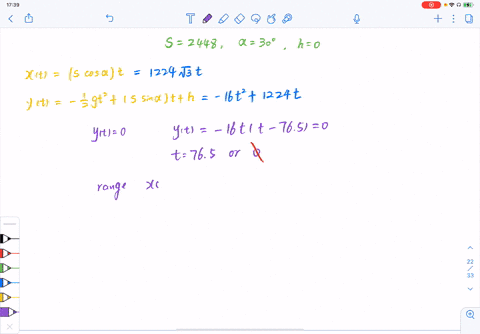 17:39
S = 2448 , α = 30° , h = 0
x(t) = (s cosα) t = 1224 √3 t
y(t) = - 1/2 gt² + (s sinα) t + h = -16t² + 1224t
y(t) = 0 y(t) = -16t(t - 76.5) = 0
t = 76.5 or 0
range x(
22
/
33